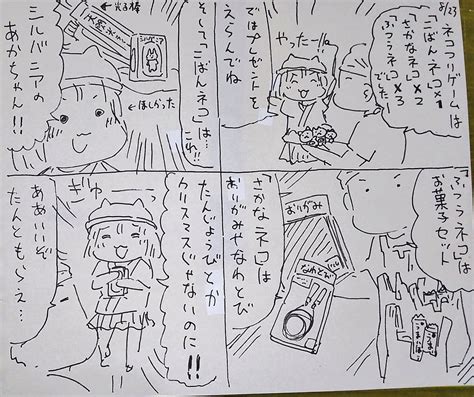 8/23
ネコフリゲーム
「こばんネコ」×1
「さかなネコ」×2
「ふつうネコ」×3
でした
やったーね
ではプレゼントを
えらんでね
「ふつうネコ」は
お菓子セット
「さかなネコ」は
おりがみやなわとび
おりがみ
なわとび
うまい
うまい
そして「こばんネコ」は…
これ!!
←光る棒
シルバニア
←ほしかった
シルバニアの
あかちゃん!!
ぎゅー
たんじょうびとか
クリスマスじゃないのに!!
ああいいぞ
たんともらえ…